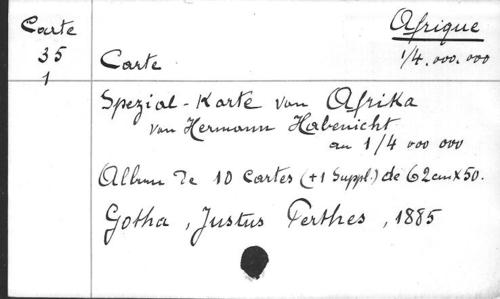 Carte
35
1
Afrique
1/4.000.000
Carte
Spezial-Karte von Afrika
von Hermann Habenicht
au 1/4 000 000
Album de 10 cartes (+1 Suppl.) de 62cm x 50.
Gotha, Justus Perthes, 1885